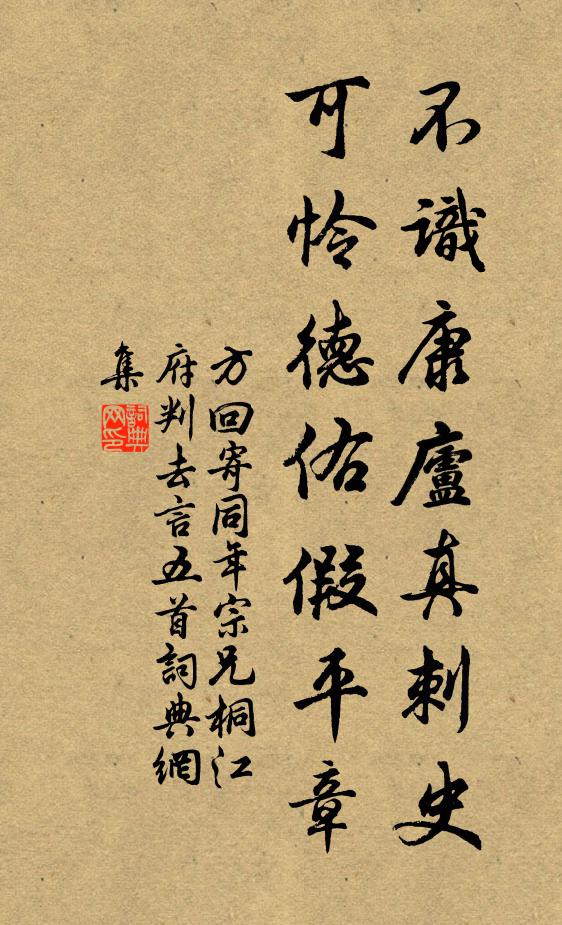 不識康廬真刺史
可怜德佑假平章
方回寄同年宗兄桐江
府判去言五首詞典網
集
詞典
网印